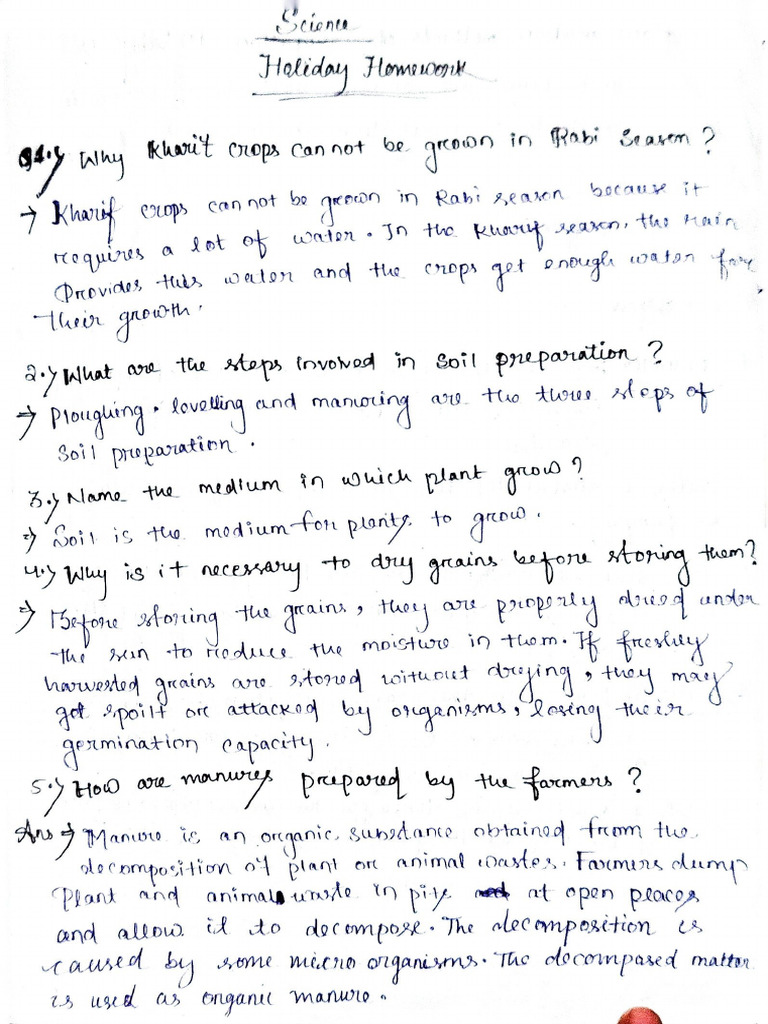 Science
Holiday Homework
Q1.) Why Kharif crops cannot be grown in Rabi Season?
→ Kharif crops cannot be grown in Rabi season because it
requires a lot of water. In the Kharif season, the rain
Provides this water and the crops get enough water for
their growth.
2.) What are the steps involved in soil preparation?
→ Ploughing, levelling and manuring are the three steps of
soil preparation.
3.) Name the medium in which plant grow?
→ Soil is the medium for plants to grow.
4.) Why is it necessary to dry grains before storing them?
→ Before storing the grains, they are properly dried under
the sun to reduce the moisture in them. If freshly
harvested grains are stored without drying, they may
get spoilt or attacked by organisms, losing their
germination capacity.
5.) How are manures prepared by the farmers?
Ans → Manure is an organic substance obtained from the
decomposition of plant or animal wastes. Farmers dump
Plant and animal waste in pits at open places
and allow it to decompose. The decomposition is
caused by some micro organisms. The decomposed matter
is used as organic manure.